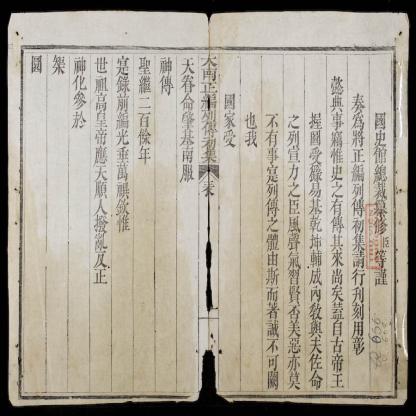 國史館總裁纂修臣等謹
奏爲將正編列傳初集請行刊刻用彰
懿典事竊惟史之有傳其來尚矣蓋自古帝王
握圖受籙易基乾坤輔成內敎與夫佐命
之列宣力之臣風聲氣習賢否美惡亦莫
不有事寔列傳之體由斯而著誠不可闕
也我
國家受
大南正編列傳初集 表
天眷命肇基南服
神傳
聖繼二百餘年
寔錄前編光垂萬禩欽惟
世祖高皇帝應天順人撥亂反正
神化參於
槃
圜